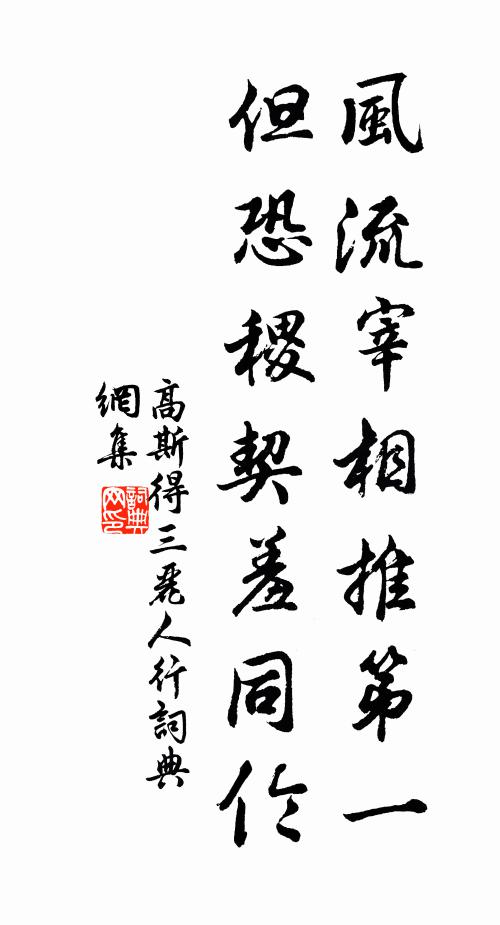 風流宰相推第一
但恐稷契羞同倫
高斯得三麗人行詞典
網集
詞典
网印